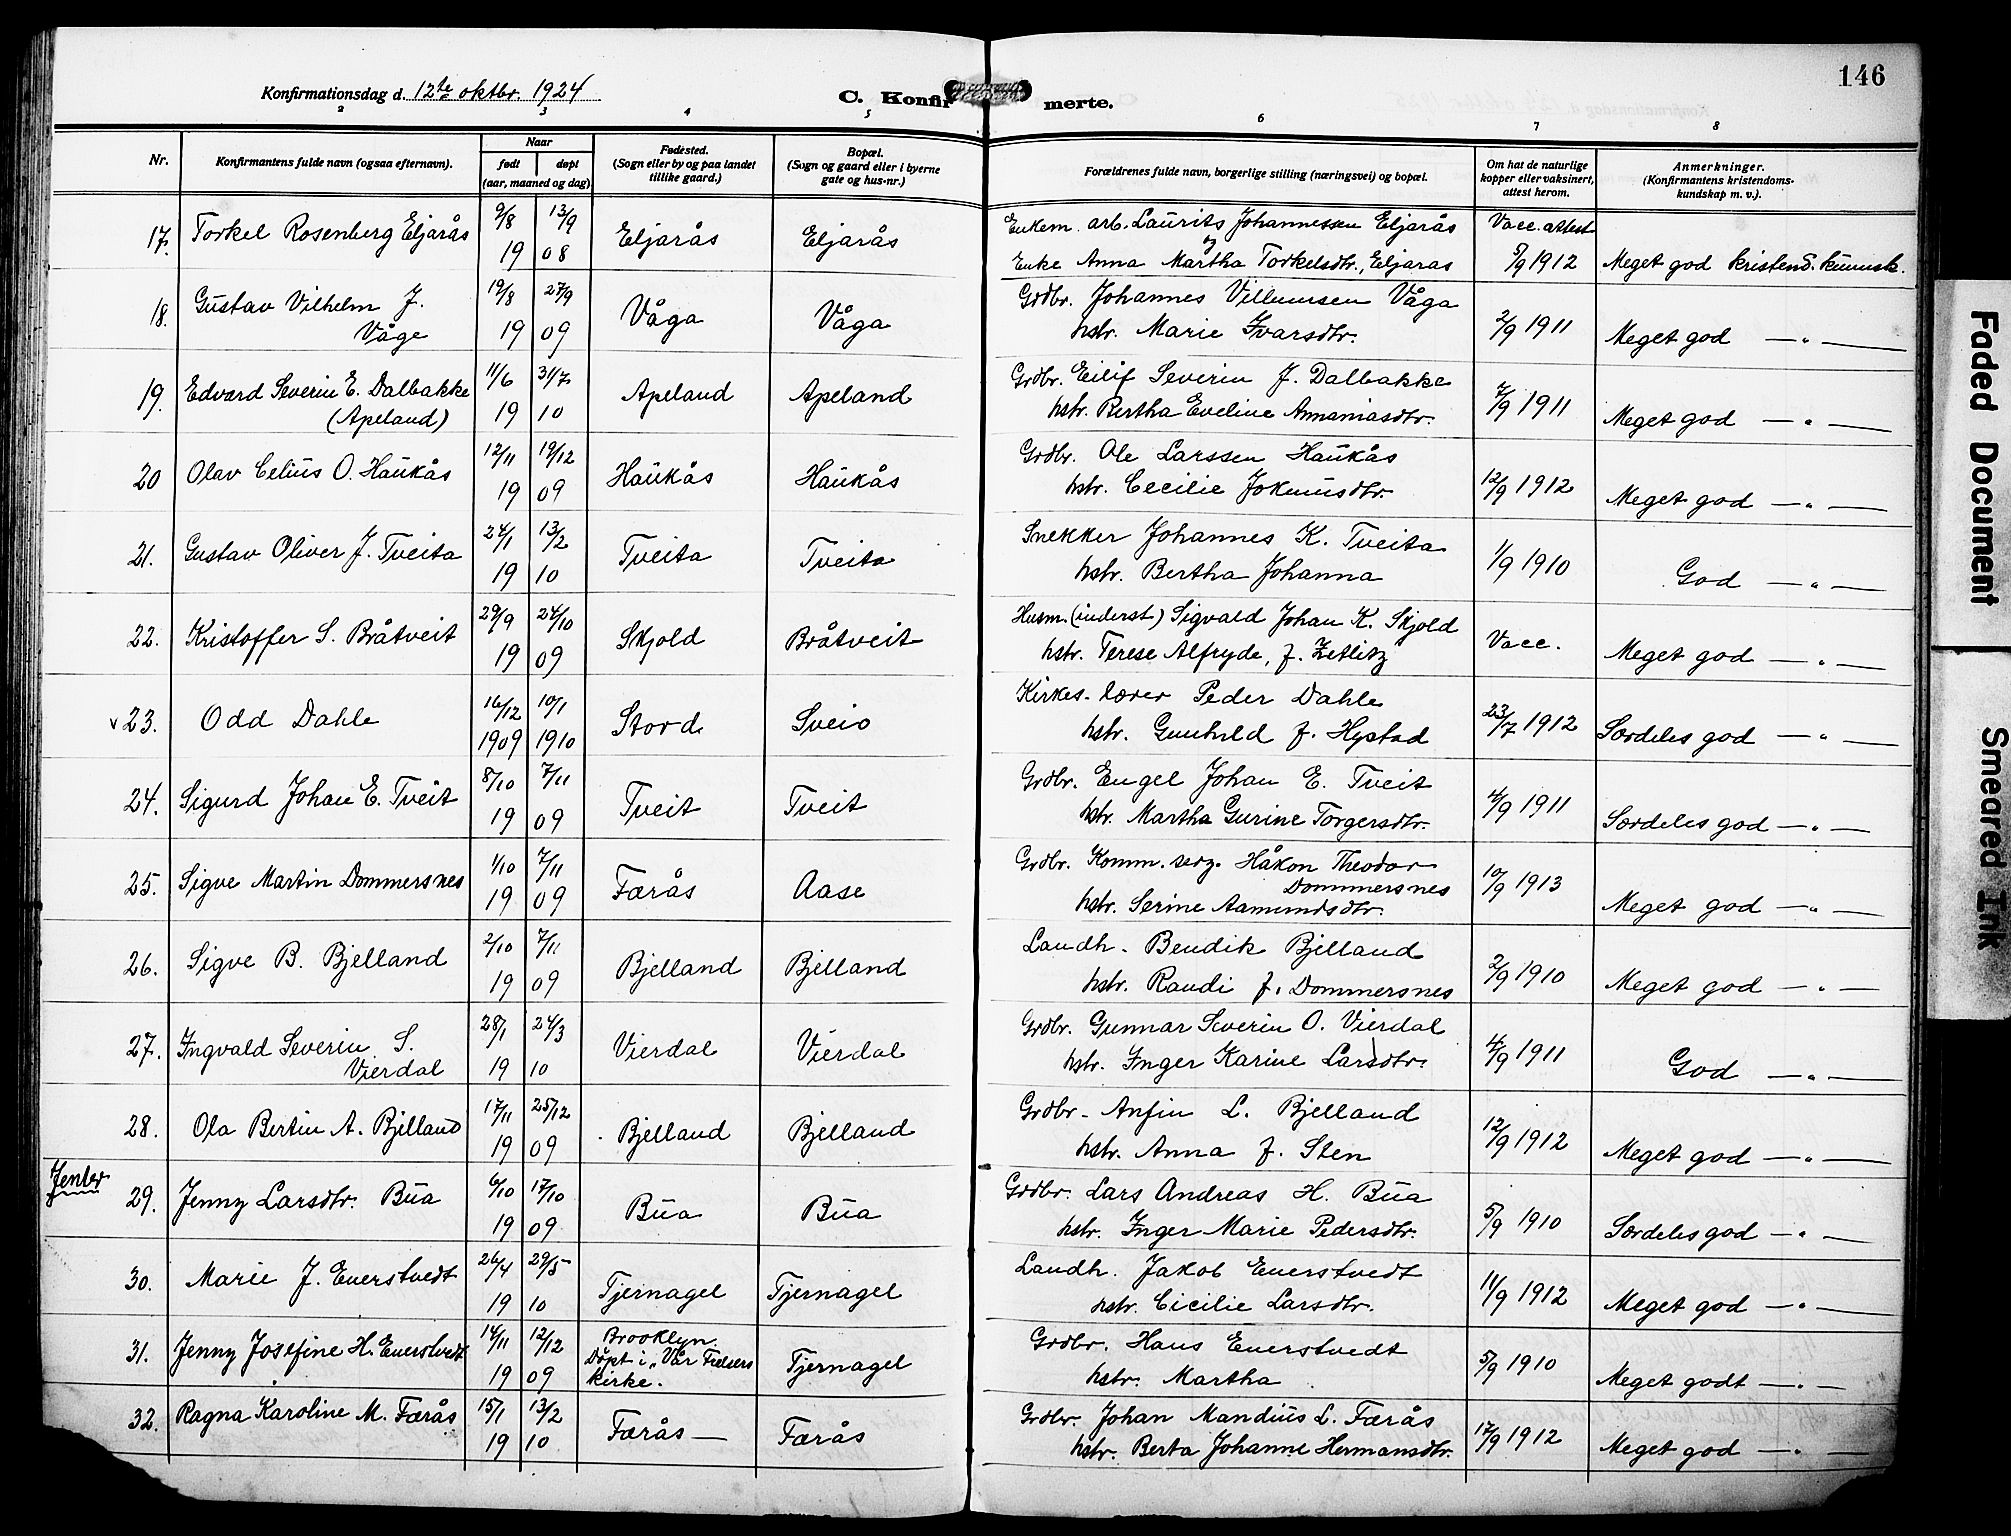 146
Konfirmationsdag d. 12te oktbr. 1924
C. Konfirmerte.
2 3 4 5 6 7 8
Nr.
Konfirmantens fulde navn (ogsaa efternavn).
Naar
født døpt
(aar, maaned og dag)
Fødested.
(Sogn eller by og paa landet
tillike gaard.)
Bopæl.
(Sogn og gaard eller i byerne
gate og hus-nr.)
Forældrenes fulde navn, borgerlige stilling (næringsvei) og bopæl.
Om hat de naturlige
kopper eller vaksinert,
attest herom.
Anmerkninger.
(Konfirmantens kristendoms-
kundskap m. v.).
17. Torkel Rosenberg Eljarås 9/8 13/9 Eljarås Eljarås Enkem. arb. Laurits Johannessen Eljarås Vacc. attest
19 08 og Enke Anna Martha Torkelsdtr., Eljaras 5/9 1912 Meget god kristend. kunnsk.
18. Gustav Vilhelm J. 19/8 27/9 Våga Våga Grdbr. Johannes Villumsen Våga
Våge 19 09 hstr. Marie Ivarsdtr. 2/9 1911 Meget god — " —
19. Edvard Severin E. Dalbakke 11/6 31/7 Apeland Apeland Grdbr. Eilif Severin J. Dalbakke
(Apeland) 19 10 hstr. Bertha Eveline Annaniasdtr. 7/9 1911 Meget god — " —
20 Olav Celius O. Haukås 12/11 19/12 Haukås Haukås Grdbr. Ole Larssen Haukås
19 09 hstr. Cecilie Jokumsdtr. 12/9 1912 Meget god — " —
21. Gustav Oliver J. Tveita 24/1 13/2 Tveita Tveita Snekker Johannes K. Tveita
19 10 hstr. Bertha Johanna 1/9 1910 God — " —
22. Kristoffer S. Bråtveit 29/9 24/10 Skjold Bråtveit Husm. (inderst) Sigvald Johan K. Skjold
19 09 hstr. Terese Alfryde, f. Zetlitz Vacc. Meget god — " —
v 23. Odd Dahle 16/12 10/1 Stord Sveio Kirkes. lærer Peder Dahle
1909 1910 hstr. Gunhild f. Hystad 23/7 1912 Særdeles god — " —
24. Sigurd Johan E. Tveit 8/10 7/11 Tveit Tveit Grdbr. Engel Johan E. Tveit
19 09 hstr. Martha Gurine Torgersdtr. 4/9 1911 Særdeles god — " —
25. Sigve Martin Dommersnes 1/10 7/11 Færås Aase Grdbr. Komm. serg. Håkon Theodor
Dommersnes
19 09 hstr. Serine Aamundsdtr. 10/9 1913 Meget god — " —
26. Sigve B. Bjelland 2/10 7/11 Bjelland Bjelland Landh. Bendik Bjelland
19 09 hstr. Randi f. Dommersnes 2/9 1910 Meget god — " —
27. Ingvald Severin S. 28/1 24/3 Vierdal Vierdal Grdbr. Gunnar Severin O. Vierdal
Vierdal 19 10 hstr. Inger Karine Larsdtr. 4/9 1911 God — " —
28. Ola Bertin A. Bjelland 17/11 25/12 Bjelland Bjelland Grdbr. Anfin L. Bjelland
19 09 hstr. Anna f. Sten 12/9 1912 Meget god — " —
Jenter
29. Jenny Larsdtr. Bua 6/10 17/10 Bua Bua Grdbr. Lars Andreas H. Bua
19 09 hstr. Inger Marie Pedersdtr. 5/9 1910 Særdeles god — " —
30. Marie J. Enerstvedt 26/4 29/5 Tjernagel Tjernagel Landh. Jakob Enerstvedt
19 10 hstr. Cicilie Larsdtr. 11/9 1912 Meget god — " —
31. Jenny Josefine H. Enerstvedt 14/11 12/12 Brooklyn. Tjernagel Grdbr. Hans Enerstvedt
Døpt i „Vår Frelsers
19 09 kirke. hstr. Martha 5/9 1910 Meget godt — " —
32. Ragna Karoline M. Færås 15/1 13/2 Færås — Færås Grdbr. Johan Mandius L. Færås
19 10 hstr. Berta Johanne Hermansdtr. 17/9 1912 Meget god — " —
Faded Document
Smeared Ink